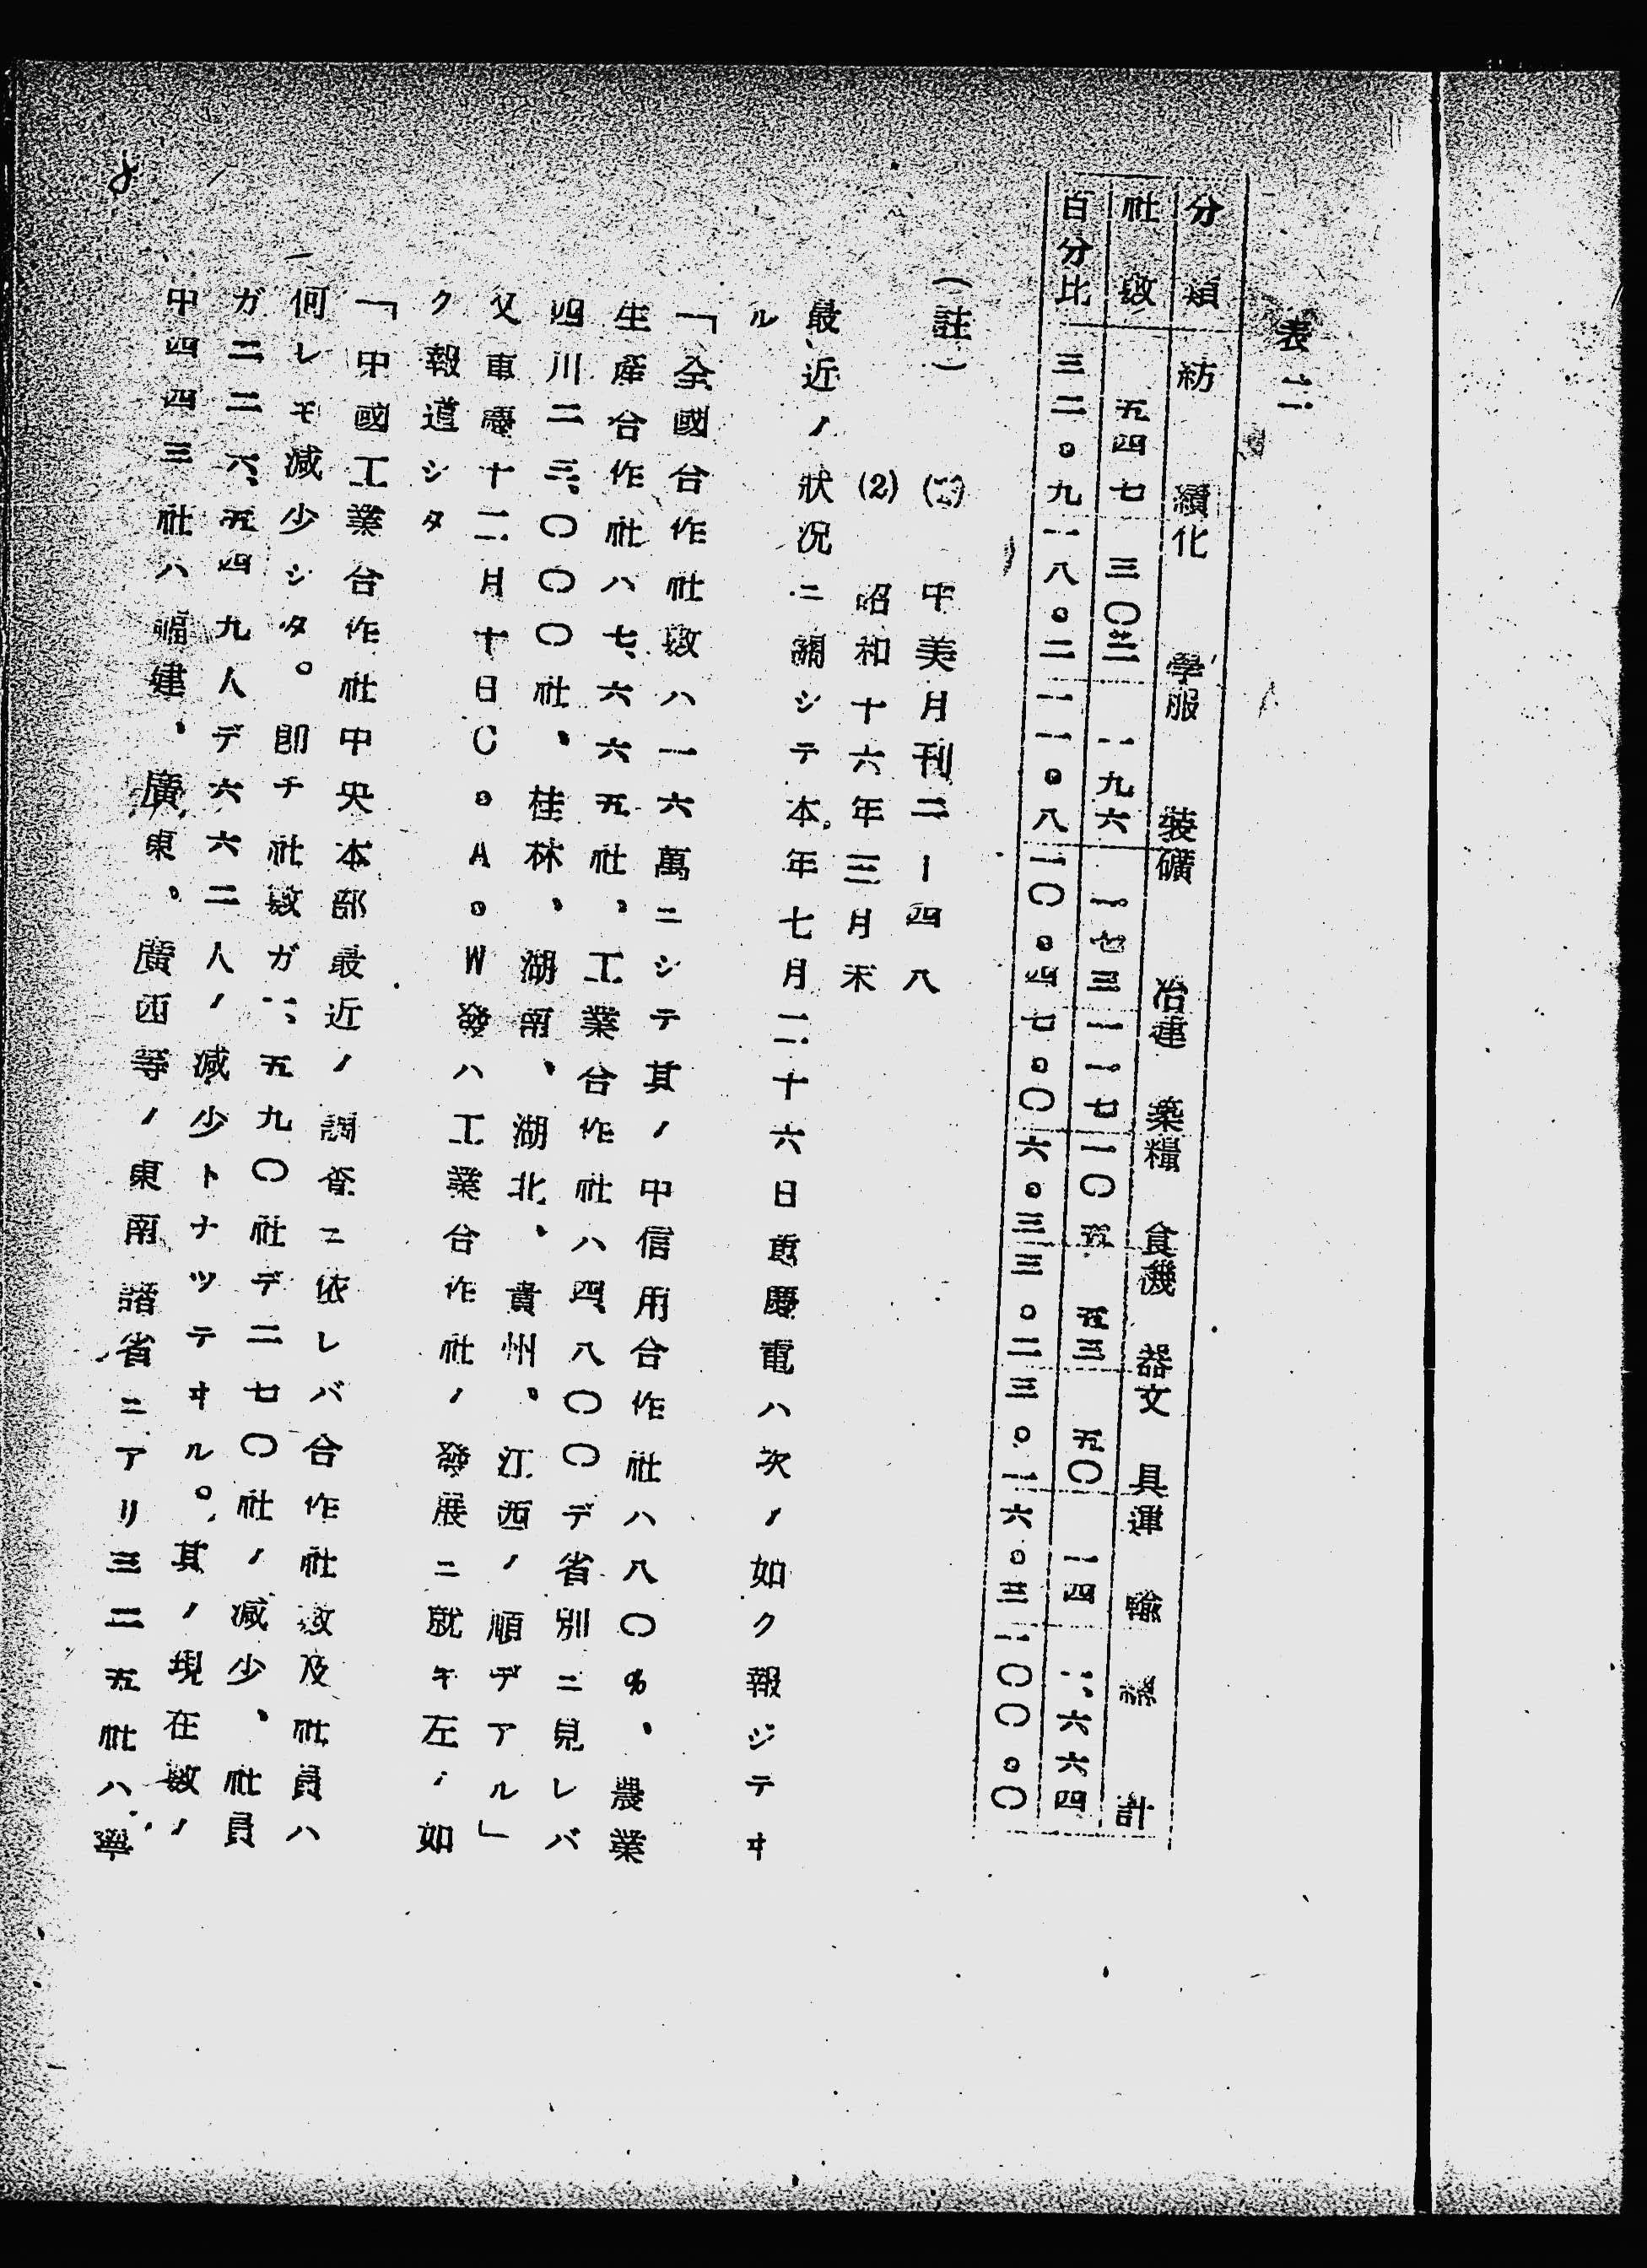 表二
分類 紡績 化學 服裝 礦冶 建築 糧食 機器 文具 運輸 總計
社數 五四七 三〇三 一九六 一七三 一一七 一〇五 五三 五〇 一四 一、六六四
百分比 三二。九 一八。二 一一。八 一〇。四 七。〇 六。三 三。二 三。一 六。三 一〇〇。〇
(註) 中美月刊二ー四八
(2) 昭和十六年三月末
最近ノ狀况ニ關シテ本年七月二十六日重慶電ハ次ノ如ク報ジテヰ
ル
「全國合作社數ハ一六萬ニシテ其ノ中信用合作社ハ八〇%、農業
生産合作社ハ七、六六五社、工業合作社ハ四、八〇〇デ省別ニ見レバ
四川二三、〇〇〇社、桂林、湖南、湖北、貴州、江西ノ順デアル」
又重慶十二月十日C。A。W發ハ工業合作社ノ發展ニ就キ左ノ如
ク報道シタ
「中國工業合作社中央本部最近ノ調査ニ依レバ合作社數及社員ハ
何レモ減少シタ。卽チ社數ガ一、五九〇社デ二七〇社ノ減少、社員
ガ二二六、五四九人デ六六二人ノ減少トナツテヰル。其ノ現在數ノ
中四四三社ハ福建、廣東。廣西等ノ東南諸省ニアリ三二五社ハ寧
8